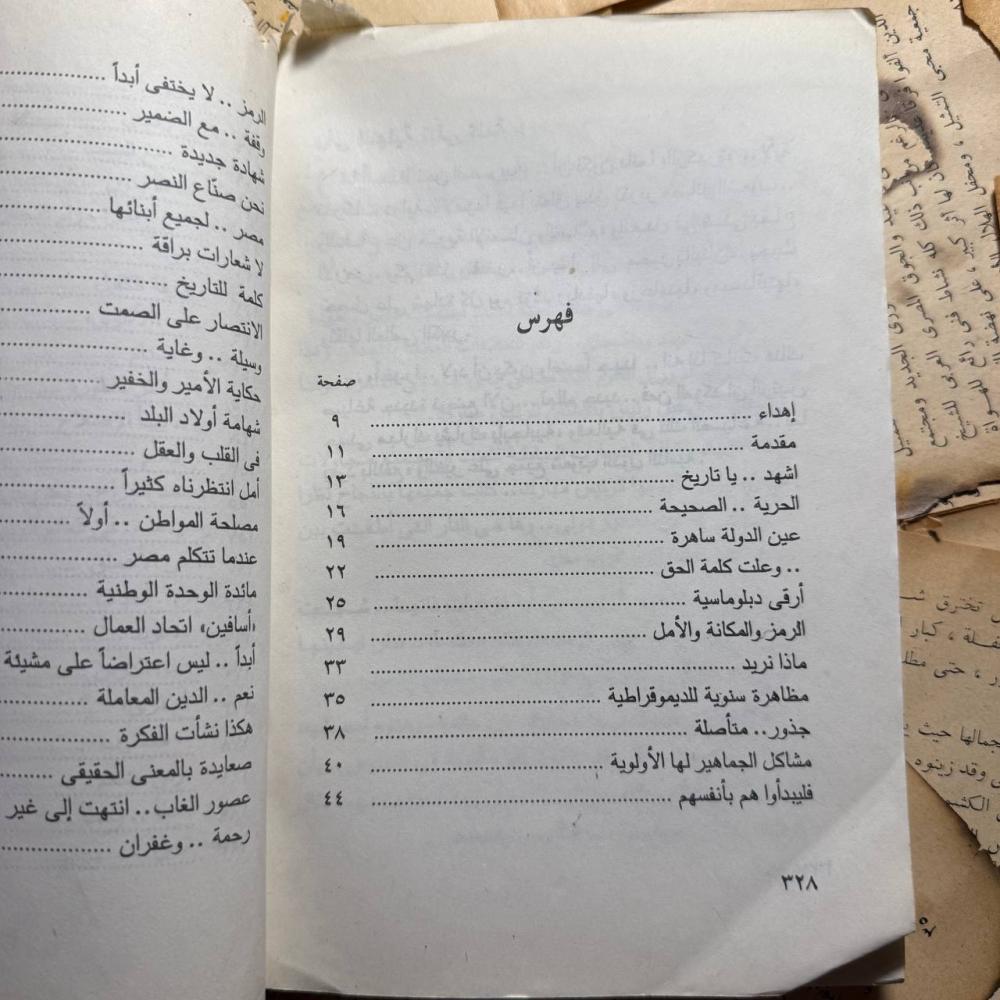 فهرس
صفحة
إهداء ........ ٩
مقدمة ........ ١١
اشهد .. يا تاريخ ........ ١٣
الحرية .. الصحيحة ........ ١٦
عين الدولة ساهرة ........ ١٩
.. وعلت كلمة الحق ........ ٢٢
أرقى دبلوماسية ........ ٢٥
الرمز والمكانة والأمل ........ ٢٩
ماذا نريد ........ ٣٣
مظاهرة سنوية للديموقراطية ........ ٣٥
جذور.. متأصلة ........ ٣٨
مشاكل الجماهير لها الأولوية ........ ٤٠
فليبدأوا هم بأنفسهم ........ ٤٤
٣٢٨
الرمز .. لا يختفى أبداً ........
وقفة .. مع الضمير ........
شهادة جديدة ........
نحن صنّاع النصر ........
مصر .. لجميع أبنائها ........
لا شعارات براقة ........
كلمة للتاريخ ........
الانتصار على الصمت ........
وسيلة .. وغاية ........
حكاية الأمير والخفير ........
شهامة أولاد البلد ........
فى القلب والعقل ........
أمل انتظرناه كثيراً ........
مصلحة المواطن .. أولاً ........
عندما تتكلم مصر ........
مائدة الوحدة الوطنية ........
«أسافين» اتحاد العمال ........
أبداً .. ليس اعتراضاً على مشيئة
نعم .. الدين المعاملة ........
هكذا نشأت الفكرة ........
صعايدة بالمعنى الحقيقى ........
عصور الغاب.. انتهت إلى غير
رحمة .. وغفران ........